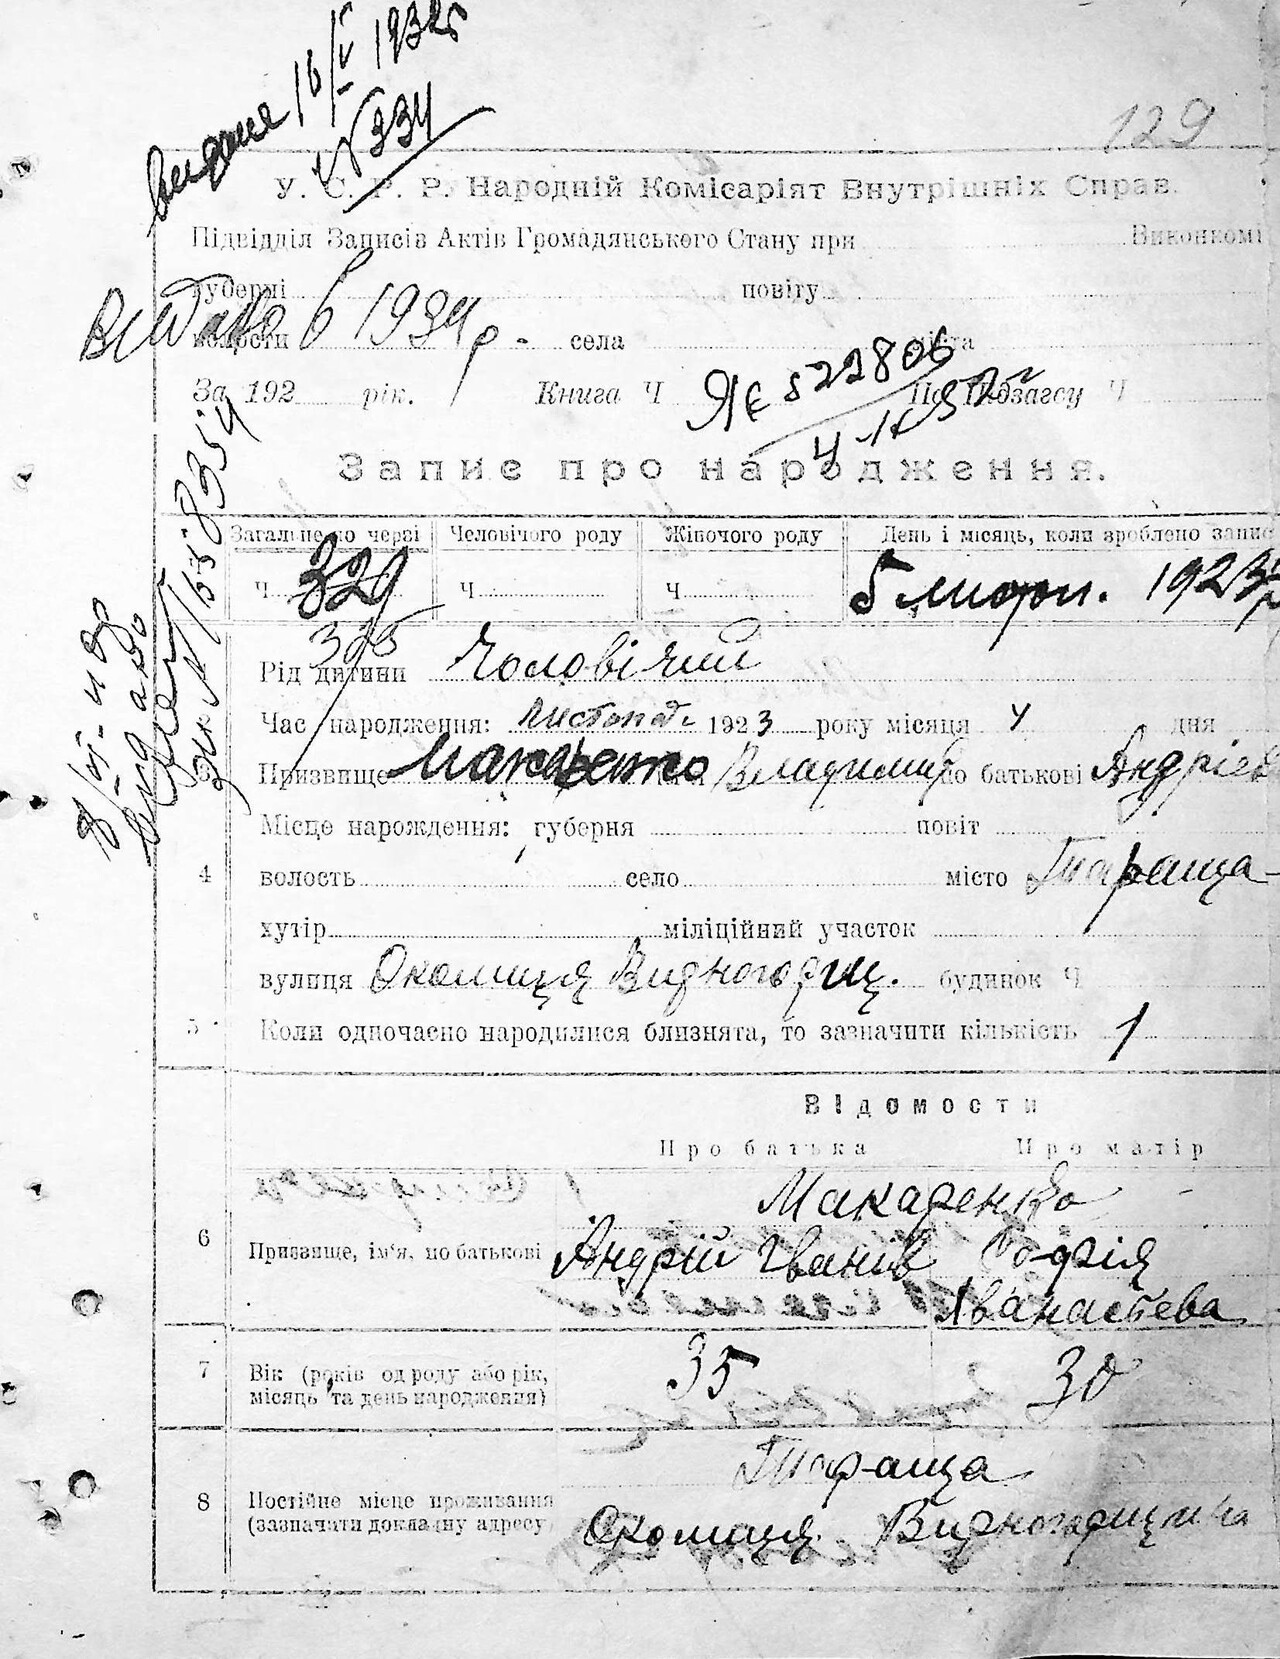 видана 16/V 1932 р
№ 334
129
У. С. Р. Р. Народній Комісаріят Внутрішніх Справ.
Підвідділ Записів Актів Громадянського Стану при Виконкомі
губерні повіту
Видано в 1934 р.
волости села міста
ЯЄ 522806
За 192 рік. Книга Ч По Підзагсу Ч
Запис про народження.
Загальне по черзі Человічого роду Жіночого роду День і місяць, коли зроблено запис
Ч 329 Ч Ч 5 листоп. 1923 р
325
Рід дитини Чоловічий
Час народження: Листопад 1923 року місяця 4 дня
3 Призвище Макаренко Владимир по батькові Андріев
Місце народження: губерня повіт
4 волость село місто Тараща
хутір міліційний участок
вулиця Околиця Видногорищ. будинок Ч
5 Коли одночасно народилися близнята, то зазначити кількість 1
Відомости
Про батька Про матір
Макаренко
6 Призвище, ім'я, по батькові Андрій Іванів Софія
Афанасієва
7 Вік (років од роду або рік, місяць та день народження) 35 30
Тараща
8 Постійне місце проживання
(зазначати докладну адресу) Околиця